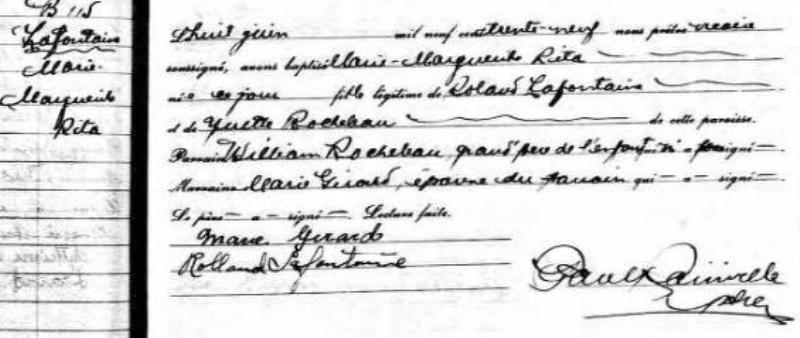 B 115
Lafontaine
Marie-
Marguerite
Rita
L huit juin mil neuf cent trente-neuf nous prêtre vicaire
soussigné, avons baptisé Marie-Marguerite Rita
né e ce jour fille légitime de Roland Lafontaine
et de Yvette Rocheleau de cette paroisse.
Parrain William Rocheleau, grand'père de l'enfant qui n'a pas signé
Marraine Marie Girard, épouse du parrain qui a signé
Le père a signé Lecture faite.
Marie Girard
Rolland Lafontaine
Paul Rainville
ptre